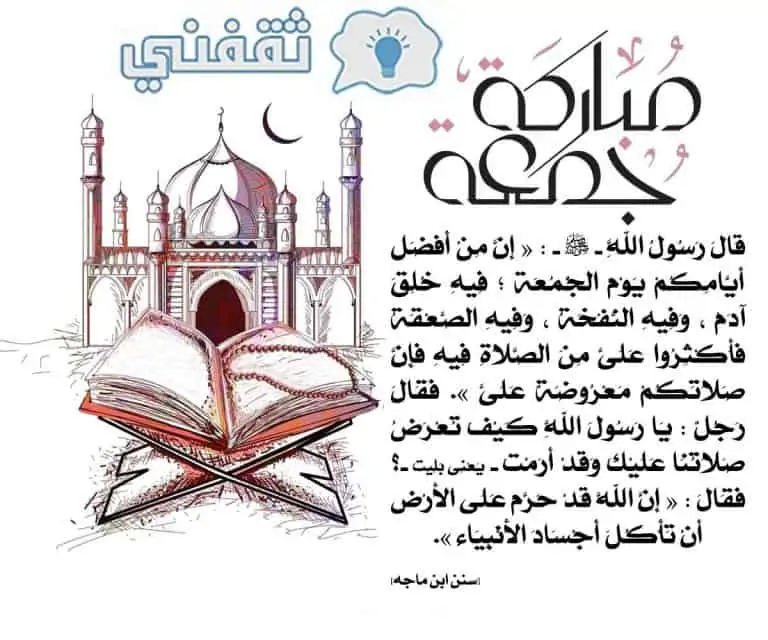 ثقفني
مُباركة
جُمعة
قالَ رَسُولُ اللَّهِ ـ ﷺ ـ : « إِنَّ مِنْ أَفْضَلِ
أَيَّامِكُمْ يَوْمَ الْجُمُعَةِ ؛ فِيهِ خُلِقَ
آدَمُ ، وَفِيهِ النَّفْخَةُ ، وَفِيهِ الصَّعْقَةُ
فَأَكْثِرُوا عَلَىَّ مِنَ الصَّلاَةِ فِيهِ فَإِنَّ
صَلاَتَكُمْ مَعْرُوضَةٌ عَلَىَّ ». فَقَالَ
رَجُلٌ : يَا رَسُولَ اللَّهِ كَيْفَ تُعْرَضُ
صَلاَتُنَا عَلَيْكَ وَقَدْ أَرَمْتَ ـ يعنى بليت ـ؟
فَقَالَ : « إِنَّ اللَّهَ قَدْ حَرَّمَ عَلَى الأَرْضِ
أَنْ تَأْكُلَ أَجْسَادَ الأَنْبِيَاءِ ».
[سنن ابن ماجه]